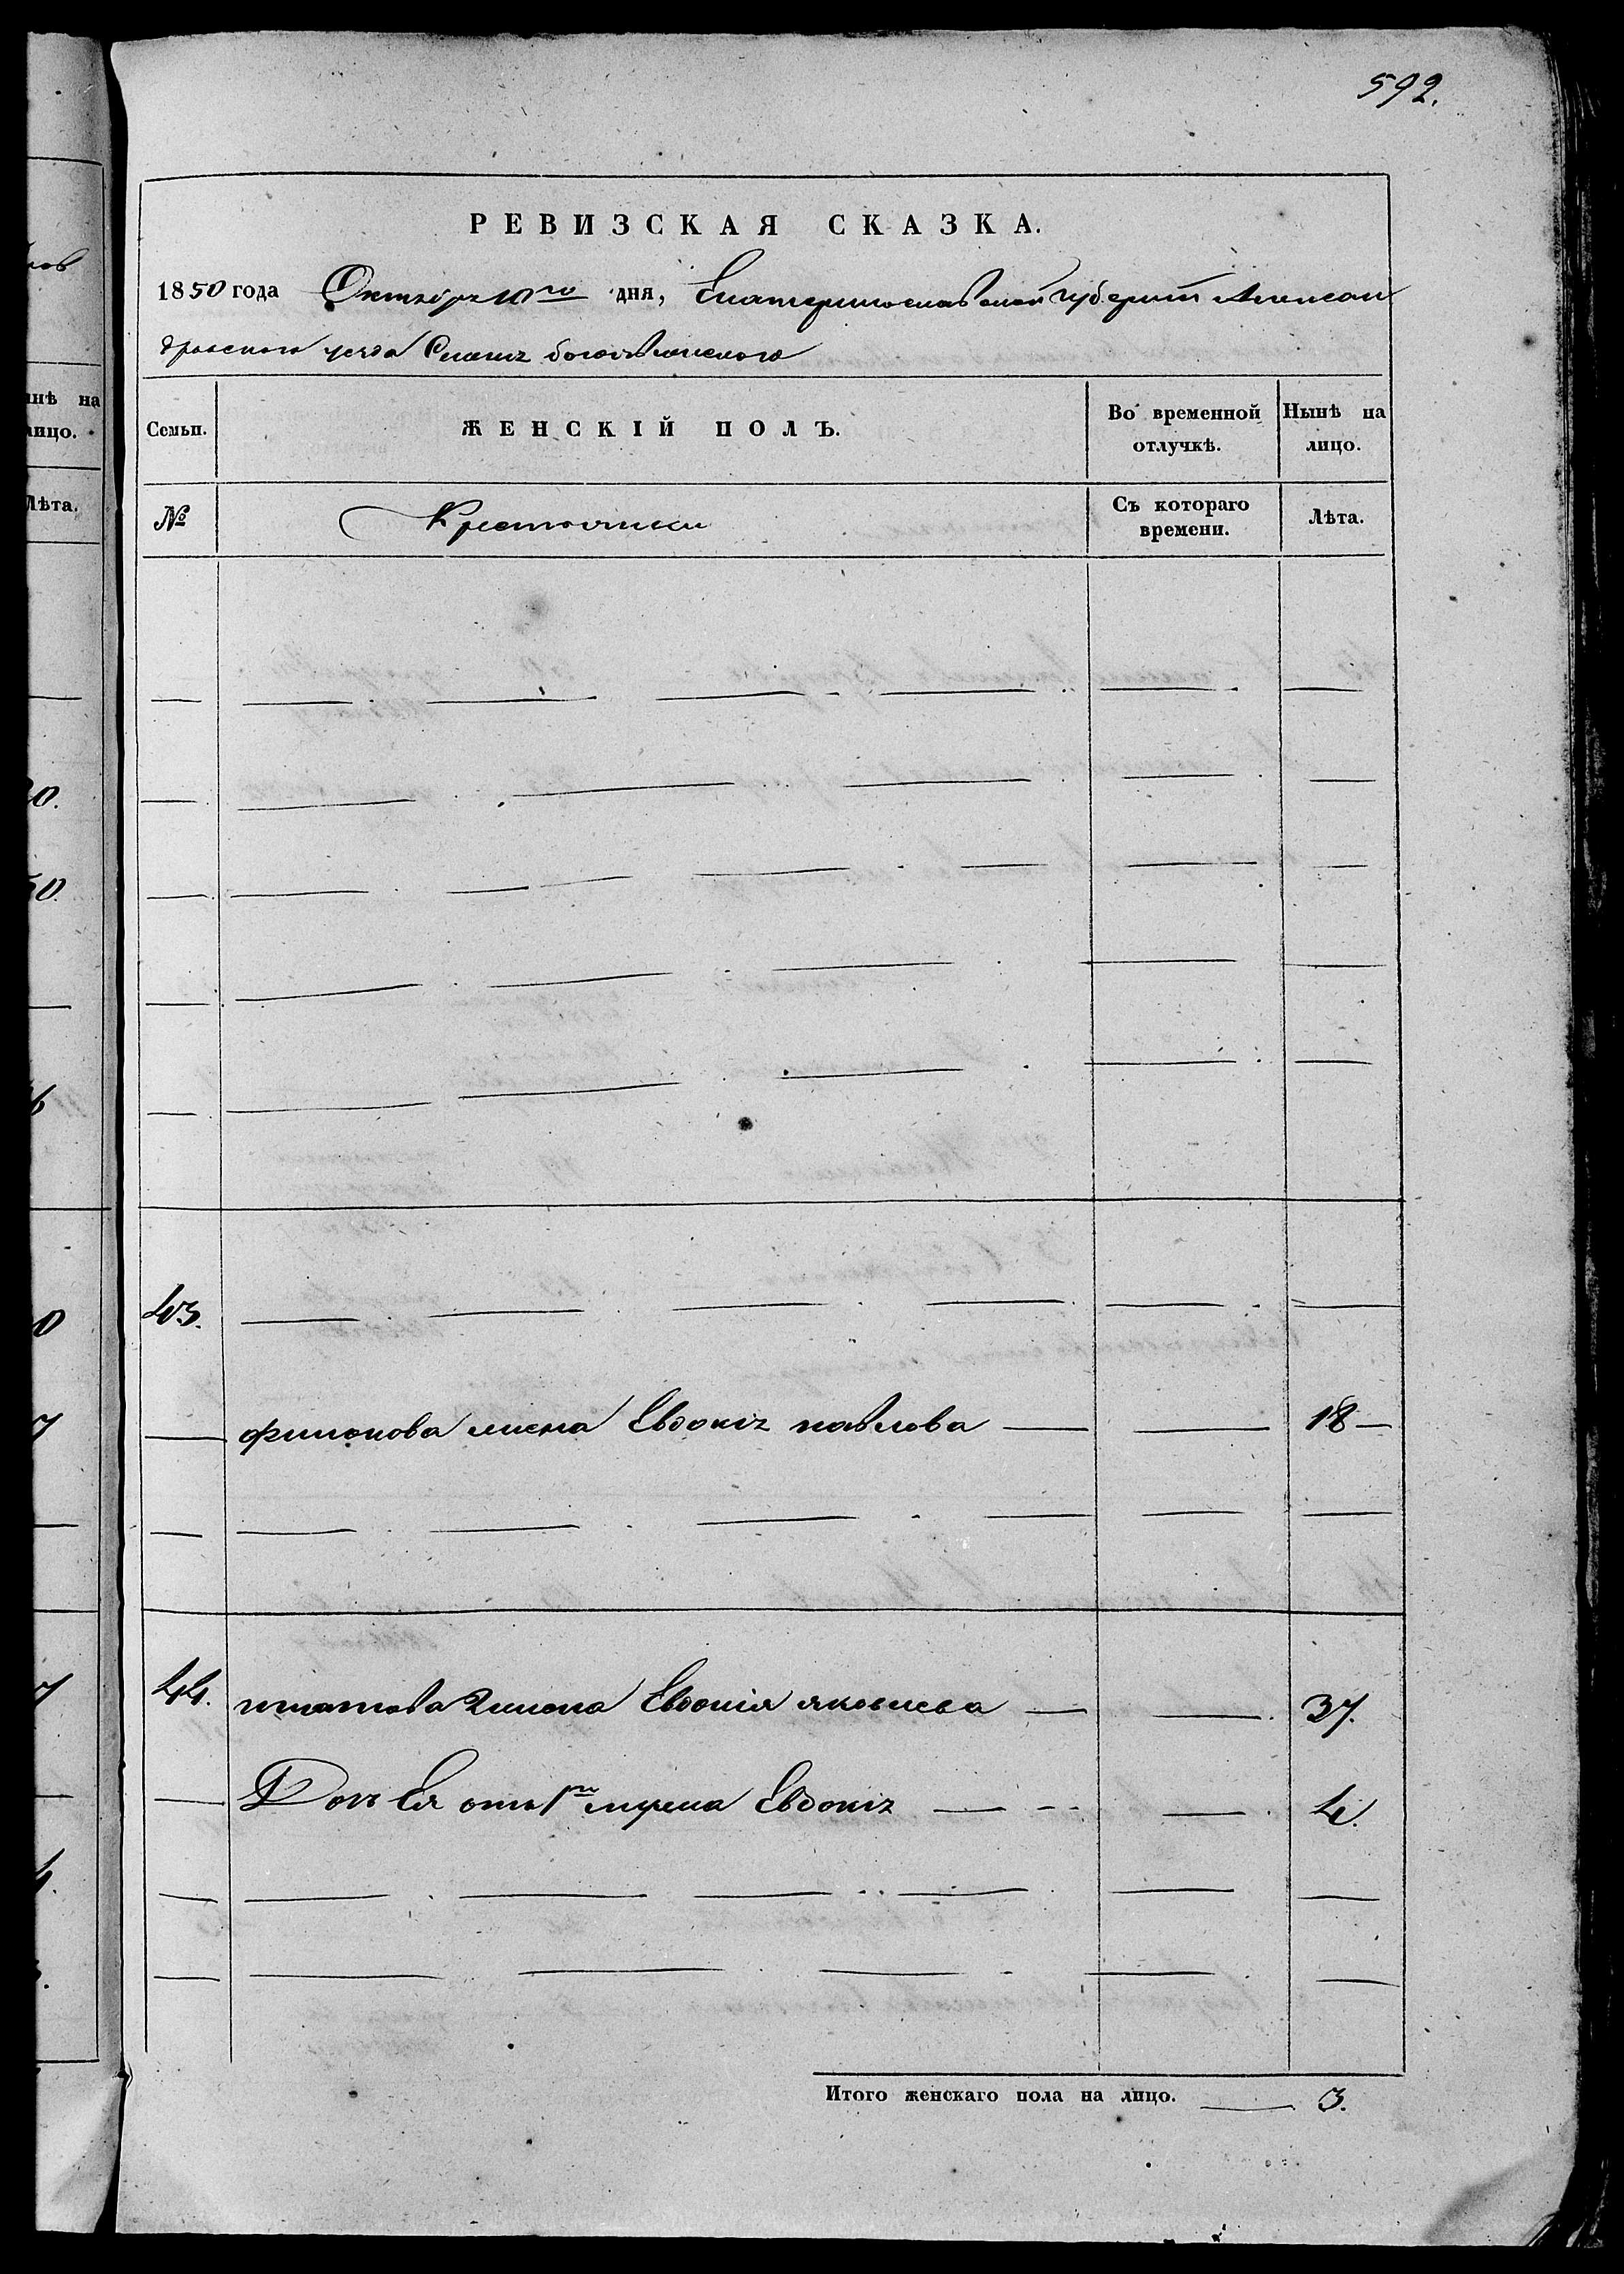 592.
РЕВИЗСКАЯ СКАЗКА.
1850 года Октября 10го дня, Екатеринославской губернии Алексан
дровского уезда Селения
Семьи. ЖЕНСКІЙ ПОЛЪ. Во временной отлучкѣ. Нынѣ на лицо.
№ Крестьянки Съ котораго времени. Лѣта.
43.
филонова жена Евдокия павлова 18
44. игнатова 2 жена Евдокия яковлева 37.
Дочь Ея отъ 1го мужа Евдокия 4.
Итого женскаго пола на лицо. 3.
нѣ на
лицо.
Лѣта.